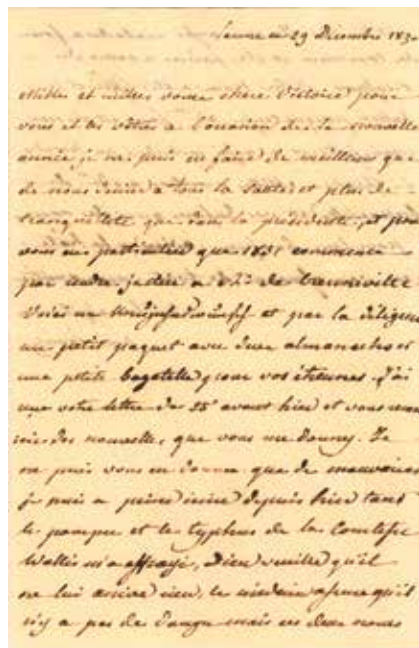 Vienne ce 29 Décembre 1830
Milles et milles voeux chère Victoire pour
vous et les vôtres à l'occasion de la nouvelle
année, je ne puis en faire de meilleurs que
de nous donner à tous la santé et plus de
tranquillité que dans la précédente, et pour
vous en particulier que 1831 commence
par rendre justice a Mr de
Voici un Neujahrswunsch et par la diligence
un petit paquet avec deux almanachs et
une petite bagatelle pour vos étrennes. J'ai
reçue votre lettre du 25 avant hier et vous remer
cie des nouvelles, que vous me donnez. Je
ne puis vous en donner que de mauvaises
je suis a peine depuis hier tant
la et le typhus de la Comtesse
Wallis m'a effrayé, Dieu veuille qu'il
ne lui arrive rien, le médecin assure qu'il
n'y a pas de danger mais ces deux